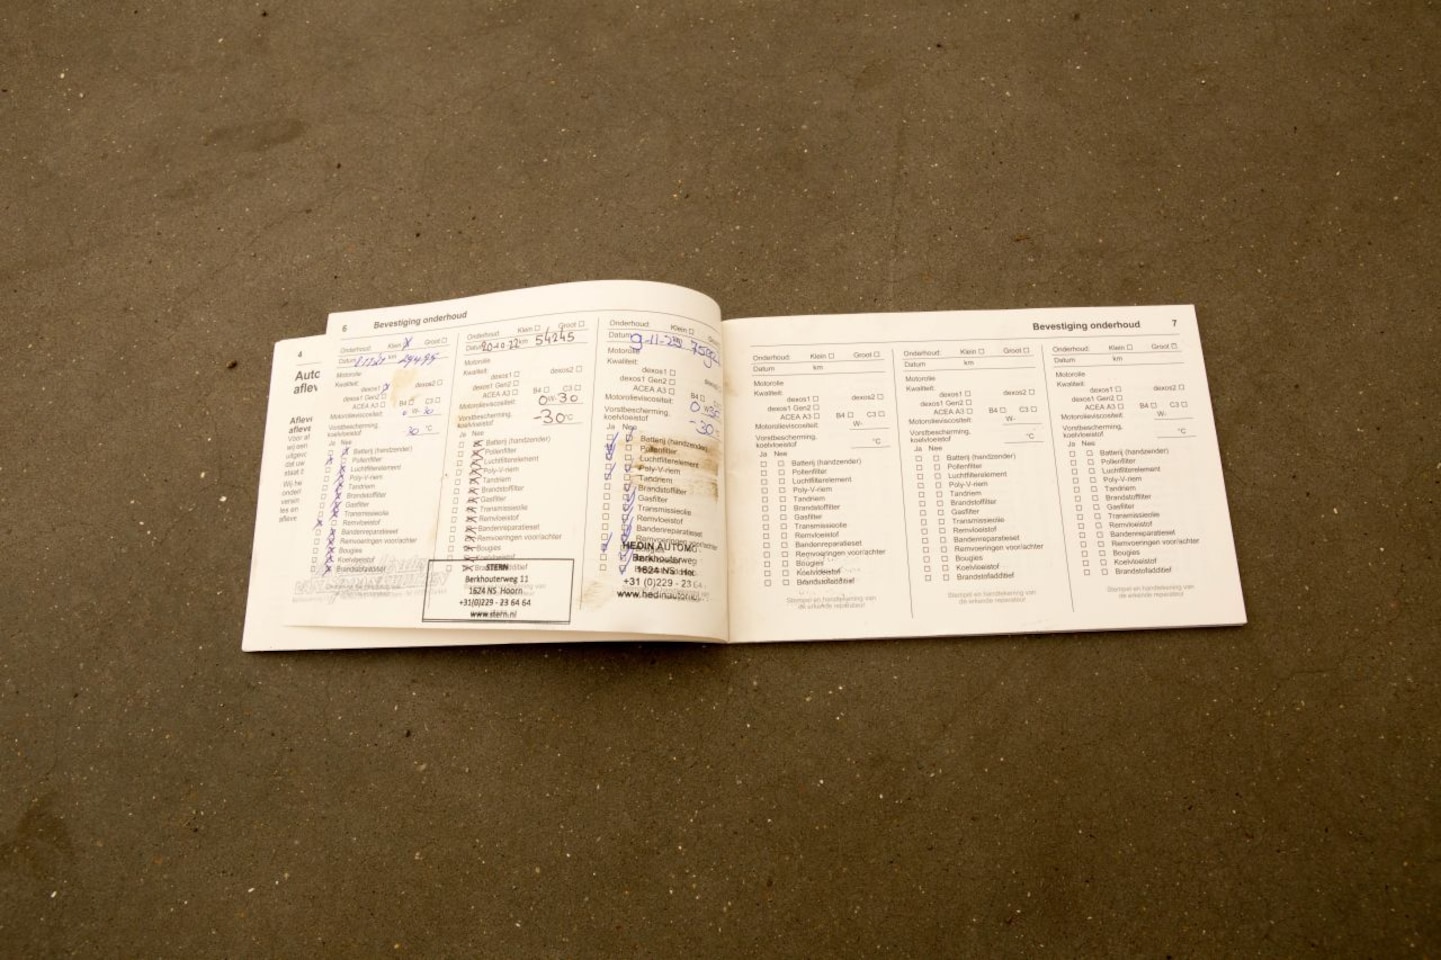 4
Auto
aflev
Aflev
afleve
6 Bevestiging onderhoud
Onderhoud: Klein Groot
Datum km
Motorolie
Kwaliteit:
dexos1 dexos2
dexos1 Gen2
ACEA A3 B4 C3
Motorolieviscositeit:
0 W- 30
Vorstbescherming,
koelvloeistof
30 °C
Ja Nee
Batterij (handzender)
Pollenfilter
Luchtfilterelement
Poly-V-riem
Tandriem
Brandstoffilter
Gasfilter
Transmissieolie
Remvloeistof
Bandenreparatieset
Remvoeringen voor/achter
Bougies
Koelvloeistof
Brandstofadditief
Onderhoud: Klein Groot
Datum 20-10-22 km 54245
Motorolie
Kwaliteit:
dexos1 dexos2
dexos1 Gen2
ACEA A3 B4 C3
Motorolieviscositeit: 0 W- 30
Vorstbescherming,
koelvloeistof -30 °C
Ja Nee
Batterij (handzender)
Pollenfilter
Luchtfilterelement
Poly-V-riem
Tandriem
Brandstoffilter
Gasfilter
Transmissieolie
Remvloeistof
Bandenreparatieset
Remvoeringen voor/achter
Bougies
Koelvloeistof
STERN
Berkhouterweg 11
1624 NS Hoorn
+31(0)229 - 23 64 64
www.stern.nl
Onderhoud: Klein
Datum 9-11-23
Motorolie
Kwaliteit:
dexos1
dexos1 Gen2
ACEA A3 B4
Motorolieviscositeit: 0 W 30
Vorstbescherming,
koelvloeistof -30 °C
Ja Nee
Batterij (handzender)
Pollenfilter
Luchtfilterelement
Poly-V-riem
Tandriem
Brandstoffilter
Gasfilter
Transmissieolie
Remvloeistof
Bandenreparatieset
Remvoeringen voor/achter
HEDIN AUTOMO
Berkhouterweg
1624 NS Hoo
+31 (0)229 - 23 64
www.hedinautom
Bevestiging onderhoud 7
Onderhoud: Klein Groot
Datum km
Motorolie
Kwaliteit:
dexos1 dexos2
dexos1 Gen2
ACEA A3 B4 C3
Motorolieviscositeit: W-
Vorstbescherming,
koelvloeistof °C
Ja Nee
Batterij (handzender)
Pollenfilter
Luchtfilterelement
Poly-V-riem
Tandriem
Brandstoffilter
Gasfilter
Transmissieolie
Remvloeistof
Bandenreparatieset
Remvoeringen voor/achter
Bougies
Koelvloeistof
Brandstofadditief
Stempel en handtekening van
de erkende reparateur
Onderhoud: Klein Groot
Datum km
Motorolie
Kwaliteit:
dexos1 dexos2
dexos1 Gen2
ACEA A3 B4 C3
Motorolieviscositeit: W-
Vorstbescherming,
koelvloeistof °C
Ja Nee
Batterij (handzender)
Pollenfilter
Luchtfilterelement
Poly-V-riem
Tandriem
Brandstoffilter
Gasfilter
Transmissieolie
Remvloeistof
Bandenreparatieset
Remvoeringen voor/achter
Bougies
Koelvloeistof
Brandstofadditief
Stempel en handtekening van
de erkende reparateur
Onderhoud: Klein Groot
Datum km
Motorolie
Kwaliteit:
dexos1 dexos2
dexos1 Gen2
ACEA A3 B4 C3
Motorolieviscositeit: W-
Vorstbescherming,
koelvloeistof °C
Ja Nee
Batterij (handzender)
Pollenfilter
Luchtfilterelement
Poly-V-riem
Tandriem
Brandstoffilter
Gasfilter
Transmissieolie
Remvloeistof
Bandenreparatieset
Remvoeringen voor/achter
Bougies
Koelvloeistof
Brandstofadditief
Stempel en handtekening van
de erkende reparateur